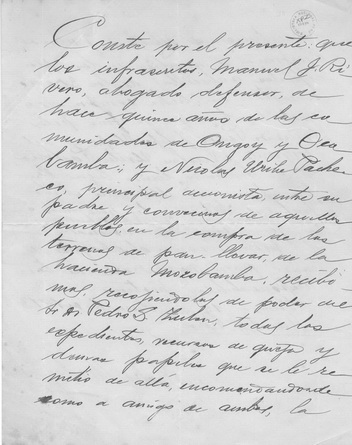 Conste por el presente: que
los infrascritos, Manuel J. Ri
vero, abogado defensor, de
hace quince años de las co
munidades de Ongoy y Oca
bamba; y Nicolas Uribe Pache
co, principal accionista entre su
padre y convecinos de aquellos
pueblos, en la compra de los
terrenos de pan-llevar, de la
hacienda Mozobamba, recibi
mos, recogiendolos de poder del
Sr. Dr. Pedro Z. todos los
expedientes, recursos de queja y
demas papeles que se le re
mitio de alla, encomendandonos
como a amigo de ambos, la